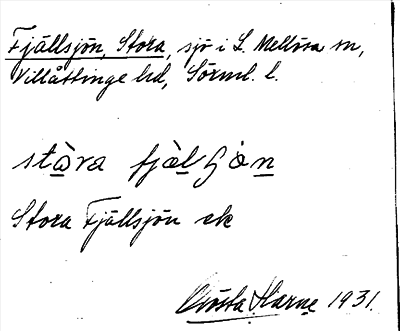 Fjällsjön, Stora, sjö i L. Mellösa sn,
Villåttinge hd, Sörml. l.
stꙍ̀ra fjäl Ṣ̌ ȯn
Stora Fjällsjön ek
Gösta Harne 1931.